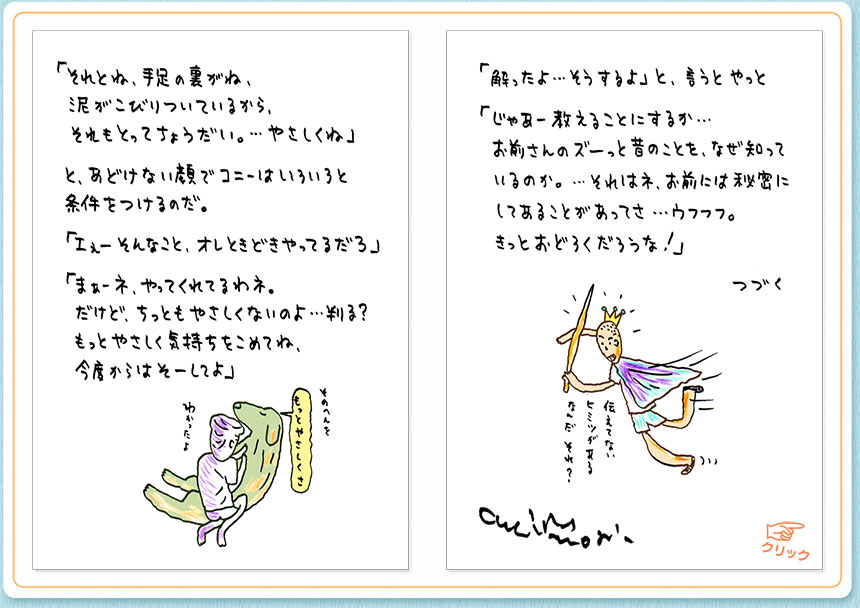 「それとね、手足の裏がね、
泥がこびりついているから、
それもとってちょうだい。…やさしくね」
と、あどけない顔でコニーはいろいろと
条件をつけるのだ。
「エぇーそんなこと、オレときどきやってるだろ」
「まぁーネ、やってくれてるわネ。
だけど、ちっともやさしくないのよ…判る?
もっとやさしく気持ちをこめてね、
今度からはそーしてよ」
そのへんを
もっとやさしくさ
わかったよ
「解ったよ…そうするよ」と、言うとやっと
「じゃあー教えることにするか…
お前さんのズーっと昔のことを、なぜ知って
いるのか。…それはネ、お前には秘密に
してあることがあってさ…ウフフフ。
きっとおどろくだろうな!」
つづく
伝えてない
ヒミツがある
なんだ それ?
クリック